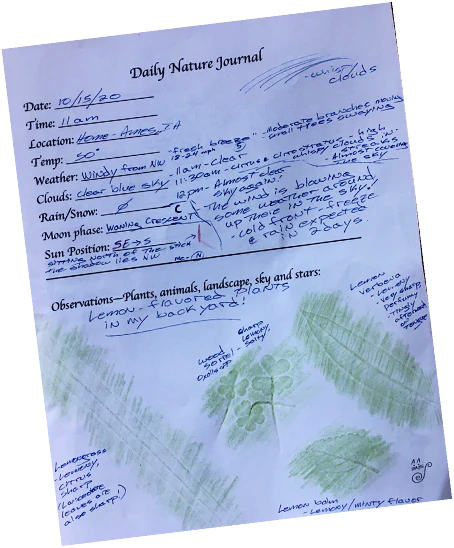 Daily Nature Journal
- whisy clouds
Date: 10/15/20
Time: 11am
Location: Home - Ames, IA
Temp: 50°
Weather: Windy from NW
- "fresh breeze" - moderate branches moving
18-24 mph (5) small trees swaying
Clouds: Clear blue sky
- 11am - clear
11:30am - cirrus & cirrostratus - high
whispy clouds in streaks
- Almost covering the sky
12pm - Almost clear
sky again!
Rain/Snow: Ø
Moon phase: Waning Crescent
Sun Position: SE → S
sitting north of the stick
the shadow lies NW
me - N
The wind is blowing
some weather around
up there in the sky!
- cold front - freeze
& rain expected
in 2 days.
Observations—Plants, animals, landscape, sky and stars:
Lemon-flavored plants
in my backyard!
Lemon verbena
- Lemony
- very sharp
perfumy
- tingly
aftertaste
on tongue
wood sorrel -
Oxalis spp
sharp
lemony,
salty
Lemongrass
- Lemony,
citrus
sharp
(Lanceolate
leaves are
also sharp!)
Lemon balm
- Lemony/minty flavor